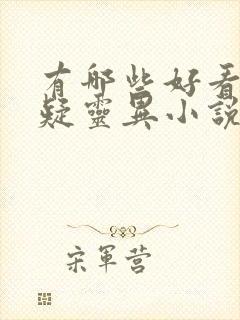 有哪些好看
疑靈異小説
宋軍营